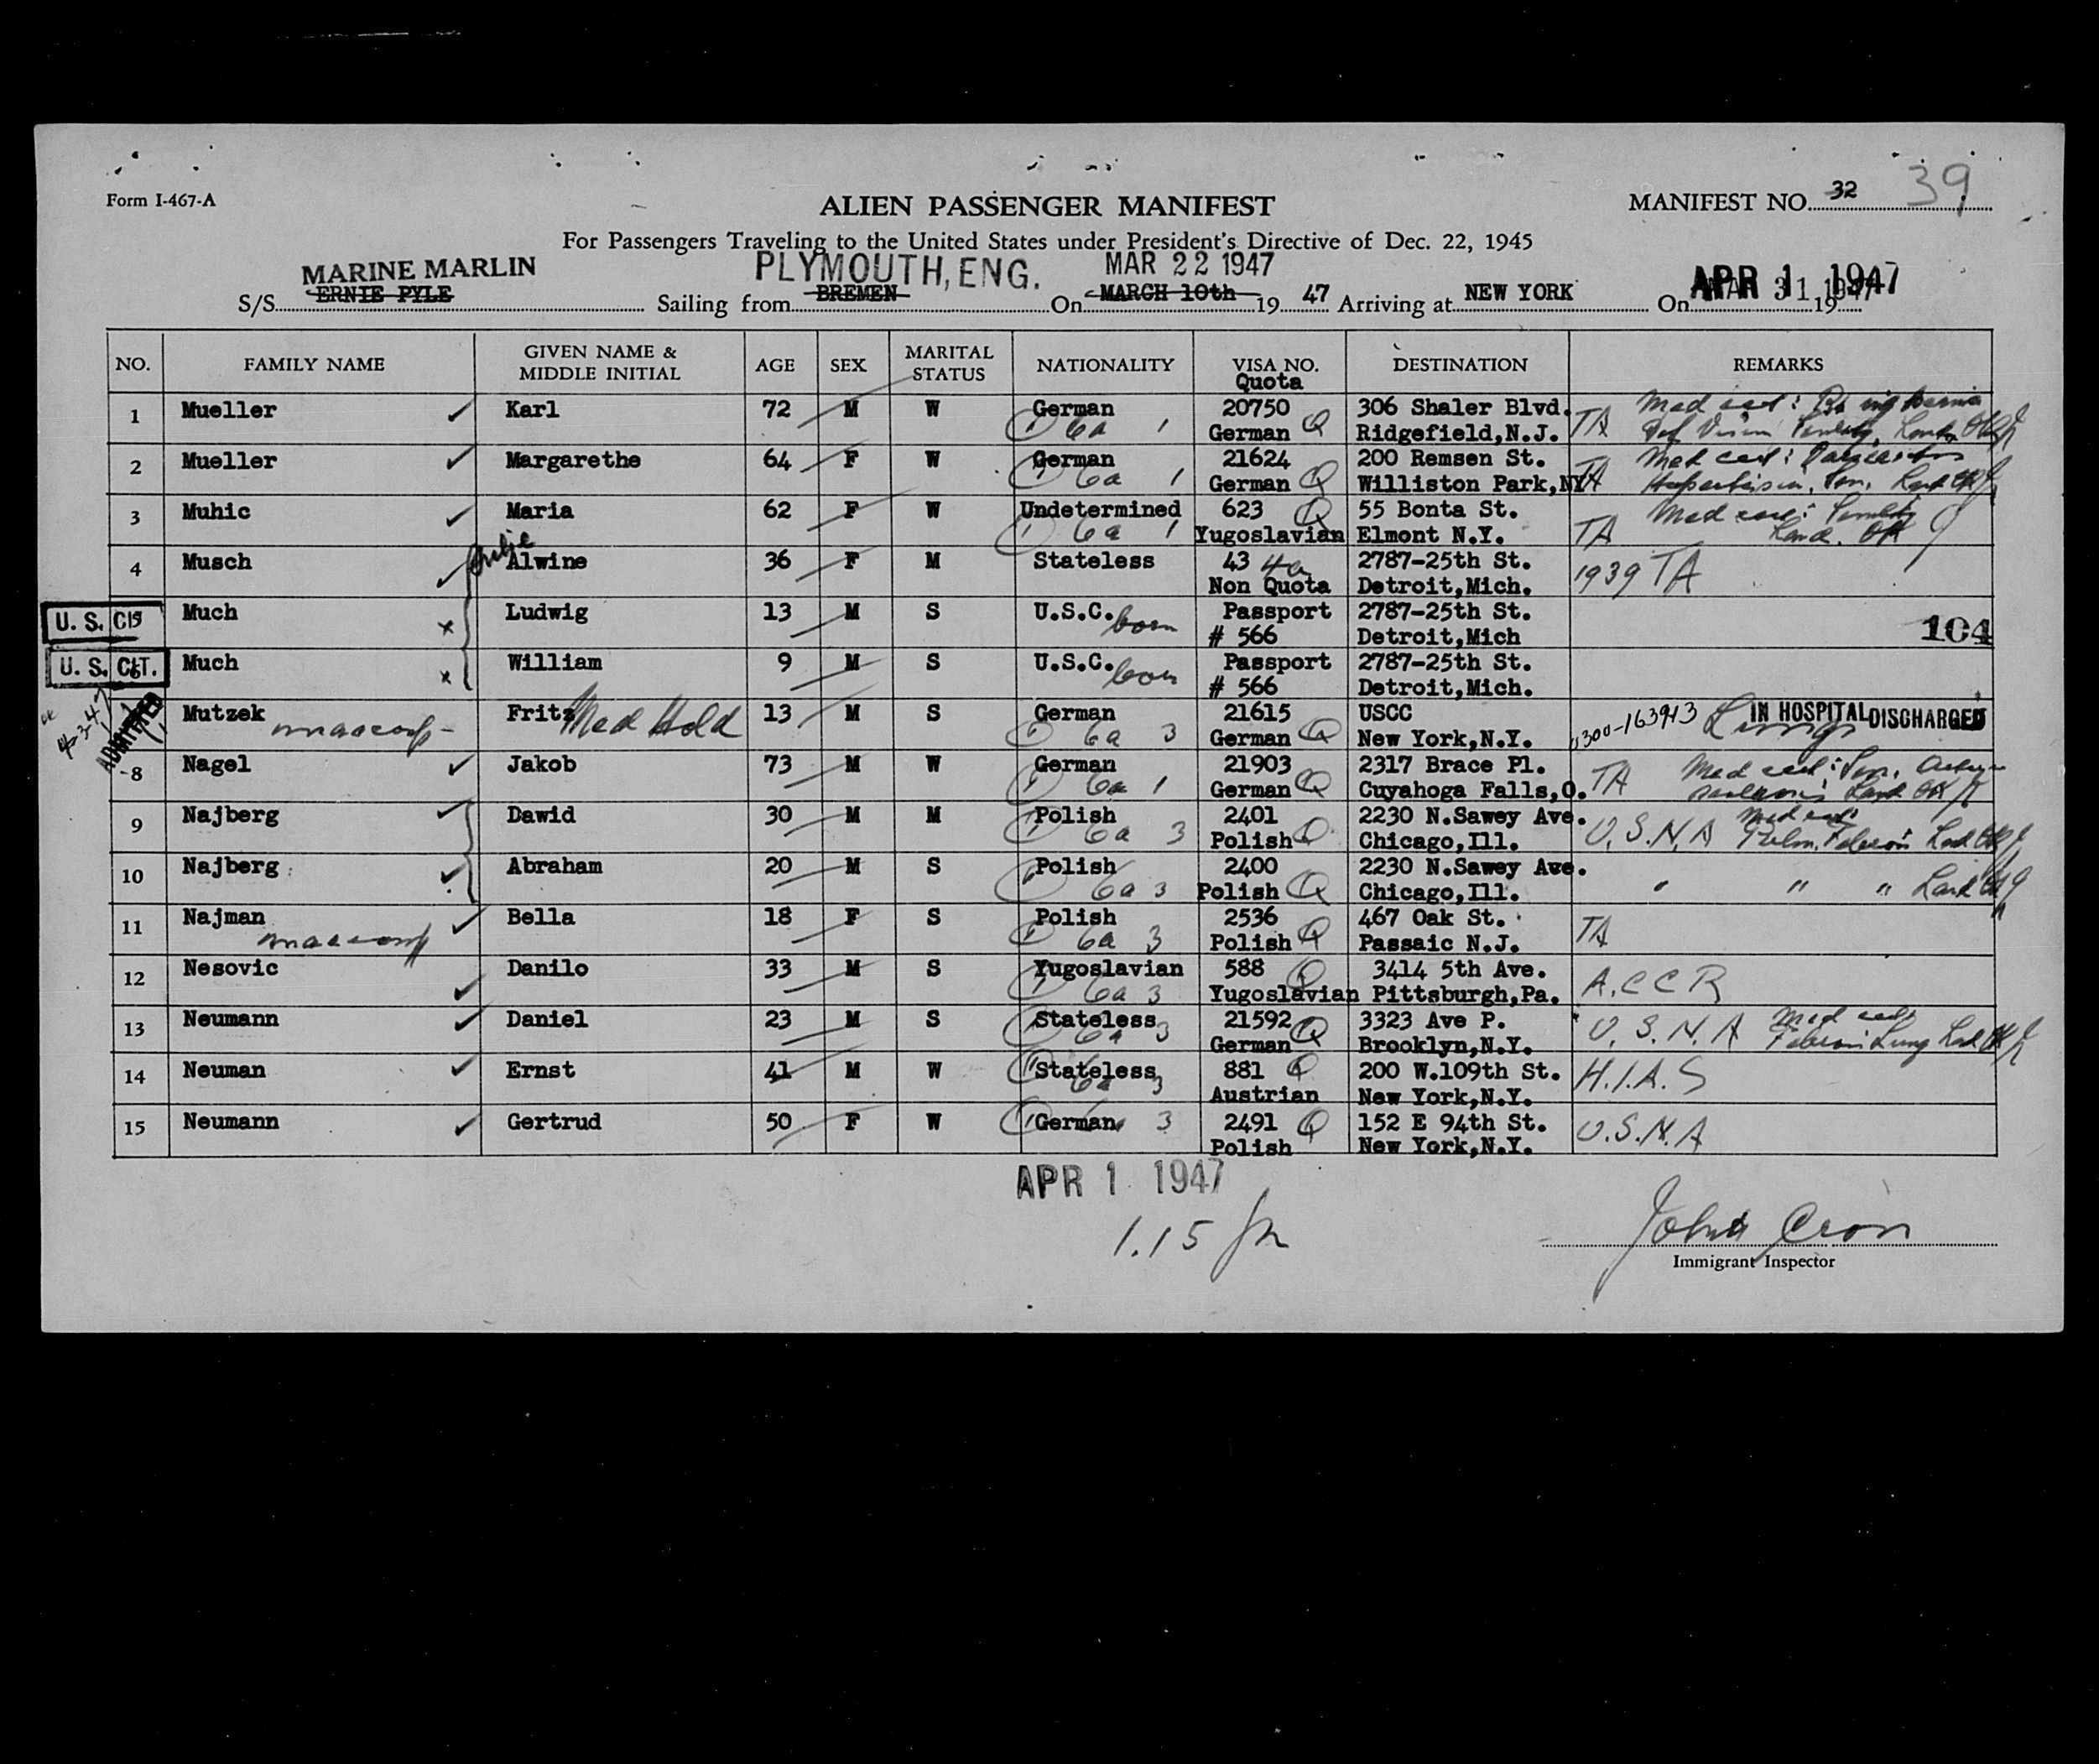 Form I-467-A
ALIEN PASSENGER MANIFEST
MANIFEST NO. 32 39
For Passengers Traveling to the United States under President's Directive of Dec. 22, 1945
MARINE MARLIN PLYMOUTH, ENG. MAR 22 1947 APR 1 1947
S/S ERNIE PYLE Sailing from BREMEN On MARCH 10th 19 47 Arriving at NEW YORK On MAR 31 1947 19
NO. FAMILY NAME GIVEN NAME & MIDDLE INITIAL AGE SEX MARITAL STATUS NATIONALITY VISA NO. Quota DESTINATION REMARKS
1 Mueller Karl 72 M W German 20750 306 Shaler Blvd. Med cert:
6a 1 German Q Ridgefield,N.J. TA
2 Mueller Margarethe 64 F W German 21624 200 Remsen St. Med cert:
6a 1 German Q Williston Park,NY TA
3 Muhic Maria 62 F W Undetermined 623 Q 55 Bonta St. Med cert: Senility
6a 1 Yugoslavian Elmont N.Y. TA
Julie
4 Musch Alwine 36 F M Stateless 43 4a 2787-25th St. 1939 TA
Non Quota Detroit,Mich.
U. S. CIT. 5 Much Ludwig 13 M S U.S.C. born Passport 2787-25th St.
# 566 Detroit,Mich 104
U. S. CIT. 6 Much William 9 M S U.S.C. born Passport 2787-25th St.
# 566 Detroit,Mich.
ADMITTED Mutzek Fritz Med Hold 13 M S German 21615 USCC 0300-163913 IN HOSPITAL DISCHARGED
unaccomp- 6a 3 German Q New York,N.Y.
8 Nagel Jakob 73 M W German 21903 2317 Brace Pl. Med cert: Sen.
6a 1 German Q Cuyahoga Falls,O. TA
9 Najberg Dawid 30 M M Polish 2401 2230 N.Sawey Ave. Med cert
6a 3 Polish Q Chicago,Ill. U.S.N.A
10 Najberg Abraham 20 M S Polish 2400 2230 N.Sawey Ave.
6a 3 Polish Q Chicago,Ill. " " "
11 Najman Bella 18 F S Polish 2536 467 Oak St.
unaccomp 6a 3 Polish Q Passaic N.J. TA
12 Nesovic Danilo 33 M S Yugoslavian 588 Q 3414 5th Ave.
6a 3 Yugoslavian Pittsburgh,Pa. A.C C R
13 Neumann Daniel 23 M S Stateless 21592 Q 3323 Ave P. U.S.N.A Med cert
6a 3 German Brooklyn,N.Y.
14 Neuman Ernst 41 M W Stateless 881 Q 200 W.109th St. H.I.A.S
6a 3 Austrian New York,N.Y.
15 Neumann Gertrud 50 F W German 3 2491 Q 152 E 94th St. U.S.N.A
Polish New York,N.Y.
APR 1 1947
1.15
Immigrant Inspector